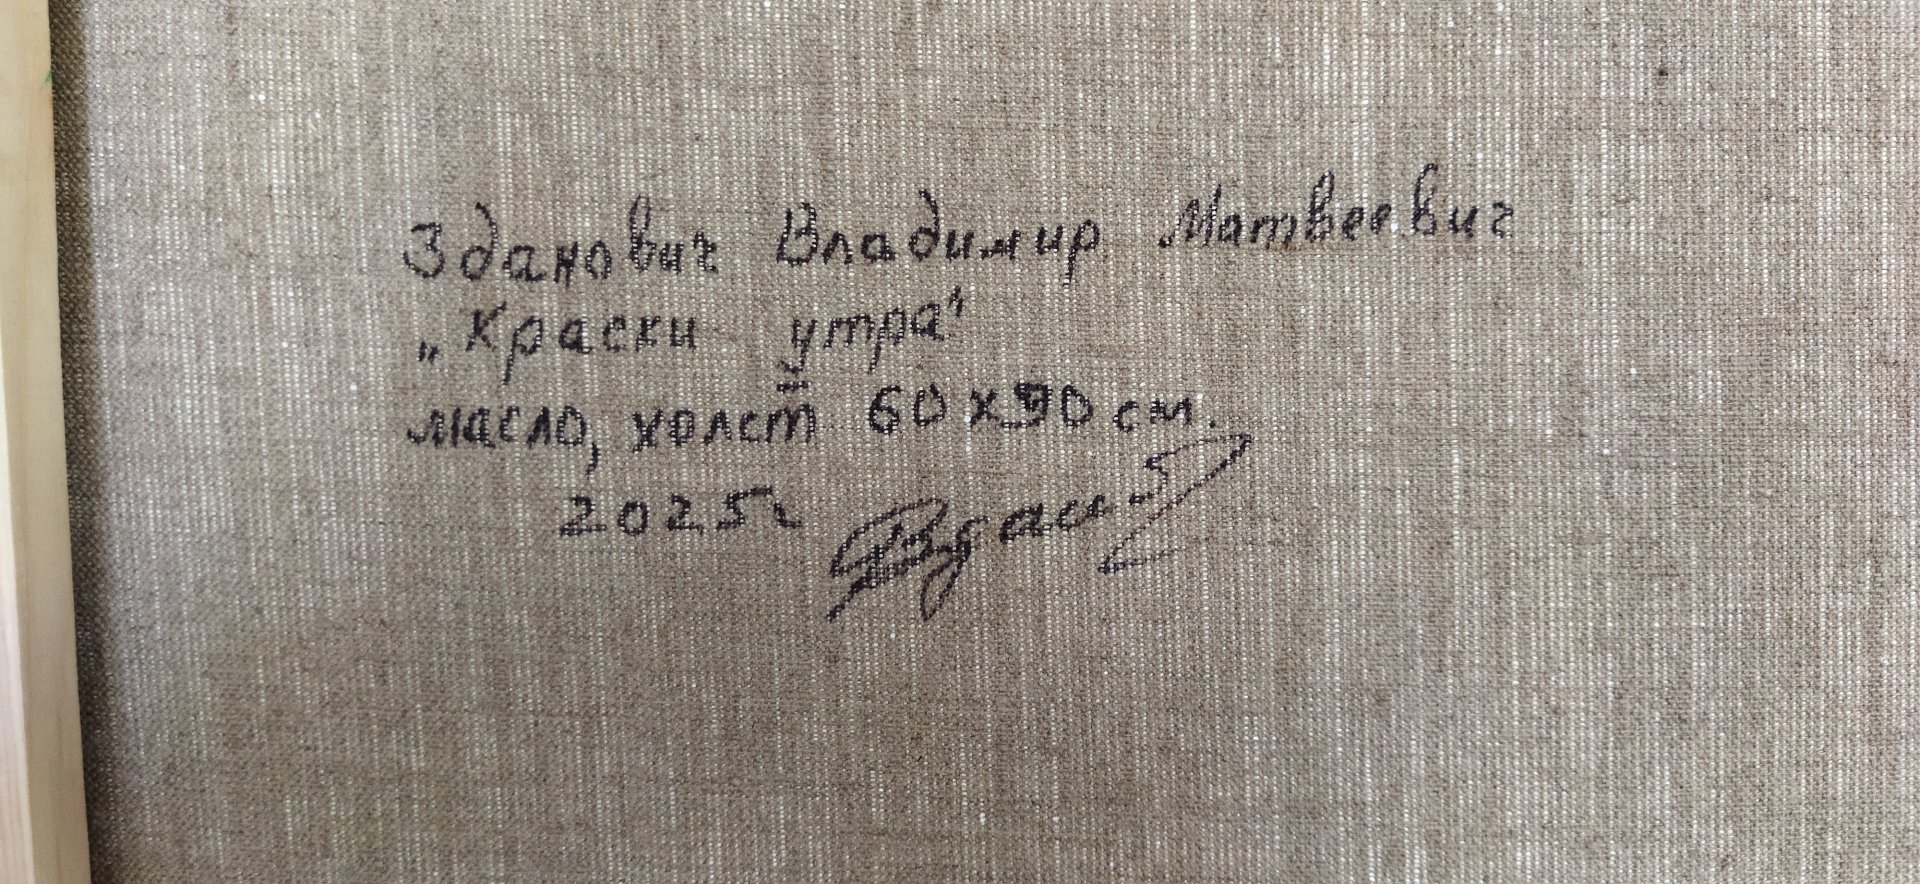 Зданович Владимир Матвеевич
„Краски утра"
масло, холст 60х90 см.
2025г